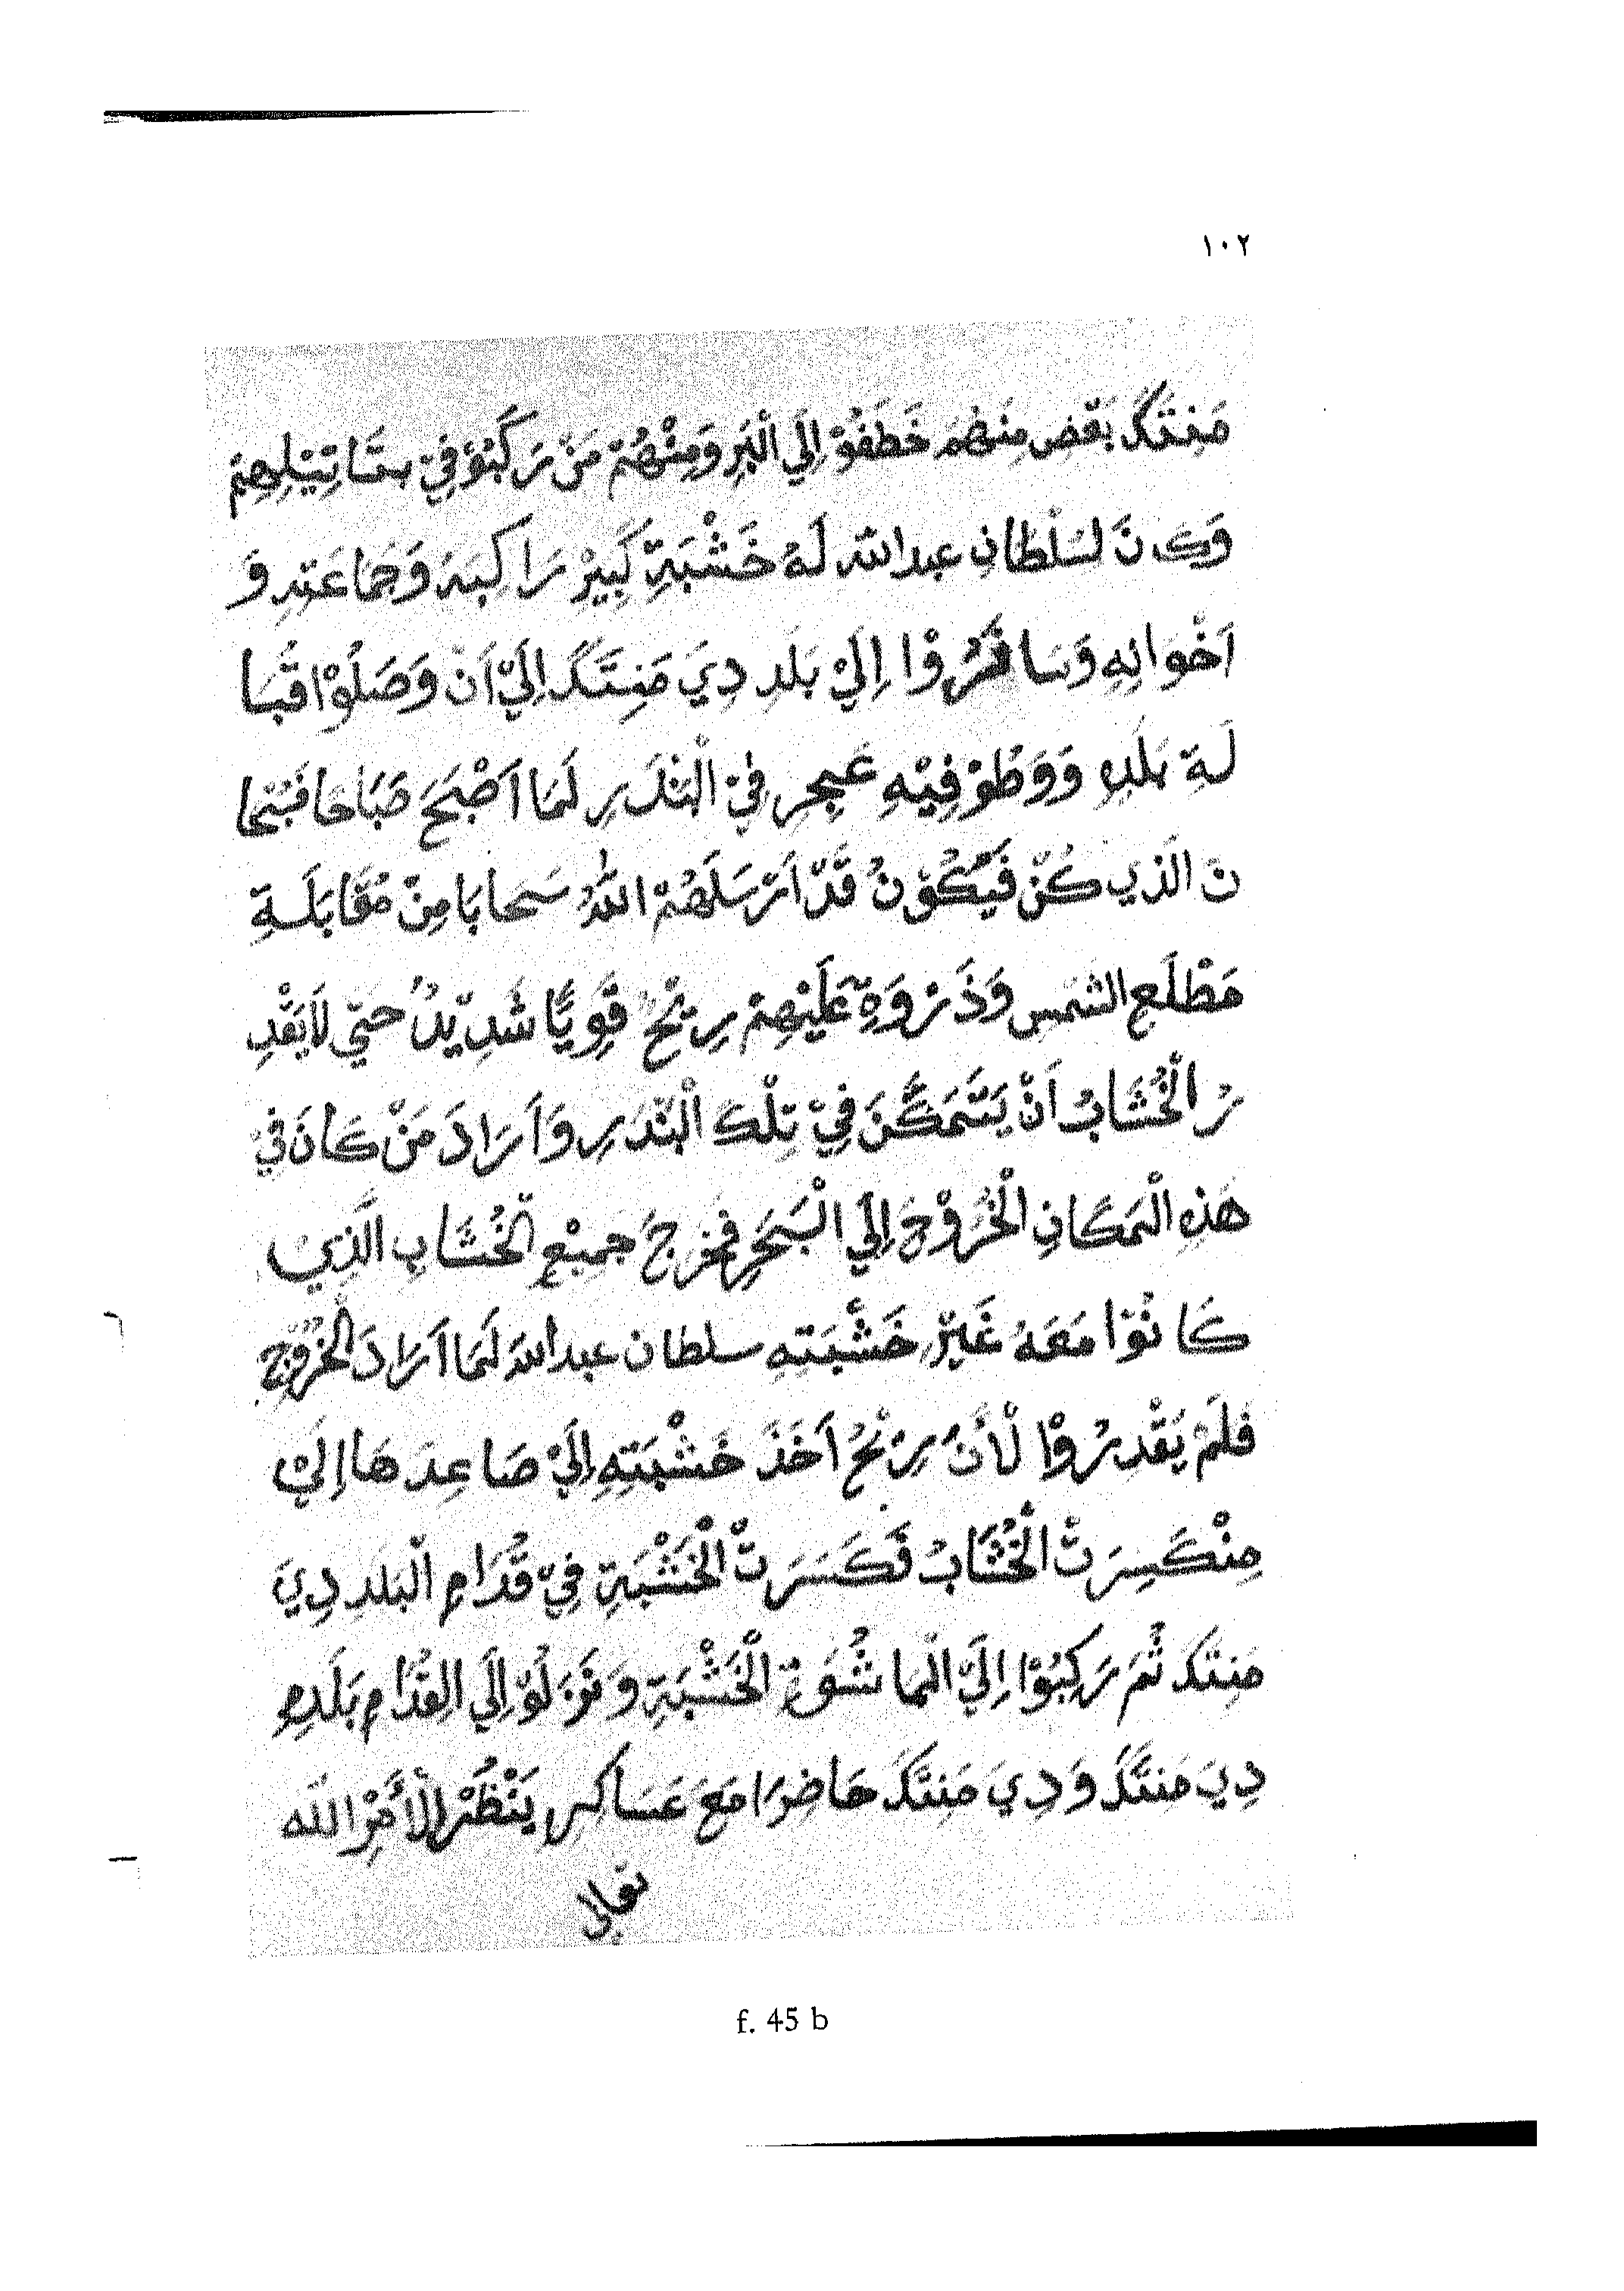 ١٠٢
مَنِتَكَ بَعْضِ مِنْهُمْ خَطَفُوْ اِلَي الْبَرِ وَمِنْهُمْ مَنْ رَكَبُوْ فِيْ سَتَاتِيْلِهِمْ
وَكَانَ لسُلْطَانِ عبدالله لَهُ خَشْبَةِ كَبِيْرْ رَاكِبَهُ وَجَمَاعَتِهِ وَ
اَخْوَانِهِ وَسَافَرُوْا اِلَيْ بَلَدِ دِيَ مَنِتَكَ اِلَيْ اَنْ وَصَلُوْا قُبَا
لَةِ بَلَدِهِ وَوَطُوْ فِيْهِ عَجِرِ فِيْ الْبَنْدَرِ لَمَا اَصْبَحَ صَبَاحًا فَبَتْحَا
نَ الَذِي كُنْ فَيَكُوْنُ قَدْ اَرْسَلَهُمْ اللهُ سَحَابَا مِنْ مُقَابَلَةِ
مَطْلَعِ الشَمْسِ وَذَرْوَةِ عَلَيْهِمْ رِيْحُ قَوِيًا شَدِيْدُ حَتِي لَا يَقْدِ
رُ الْخُشَابُ اَنْ يَتَمَكَنَ فِيْ تِلْكَ الْبَنْدَرِ وَاَرَادَ مَنْ كَانَ فِيْ
هَذِهِ الْمَكَانِ الْخُرُوْجَ اِلَي الْبَحَرِ فَخَرَجَ جَمِيْعِ الْخُشَابِ الَّذِيْ
كَانُوْا مَعَهُ غَيْرْ خَشْبَتِهِ سلطان عبدالله لَمَا اَرَادَ الْخُرُوْجَ
فَلَمْ يَقْدِرُوْا لْاَنَ رِيْحُ اَخَذَ خَشْبَتِهِ اِلَيْ صَاعِدَهَا اِلَيْ
مِنْكَسِرَتْ الْخُشَابُ فَكَسَرَتْ الْخَشْبَةِ فِيْ قُدَامِ الْبَلَدِ دِيَ
مَنِتَكَ ثُمَ رَكِبُوْا اِلَيْ الْمَاشُوَةِ الْخَشْبَةِ وَنَزَلُوْ اِلَي الْقُدَامِ بَلَدِهِ
دِيَ مَنِتَكَ وَدِيَ مَنِتَكَ حَاضِرَا مَعَ عَسَاكِرِ يَنْظُرْ لِلْأَمْرِ الله
تعالى
f. 45 b